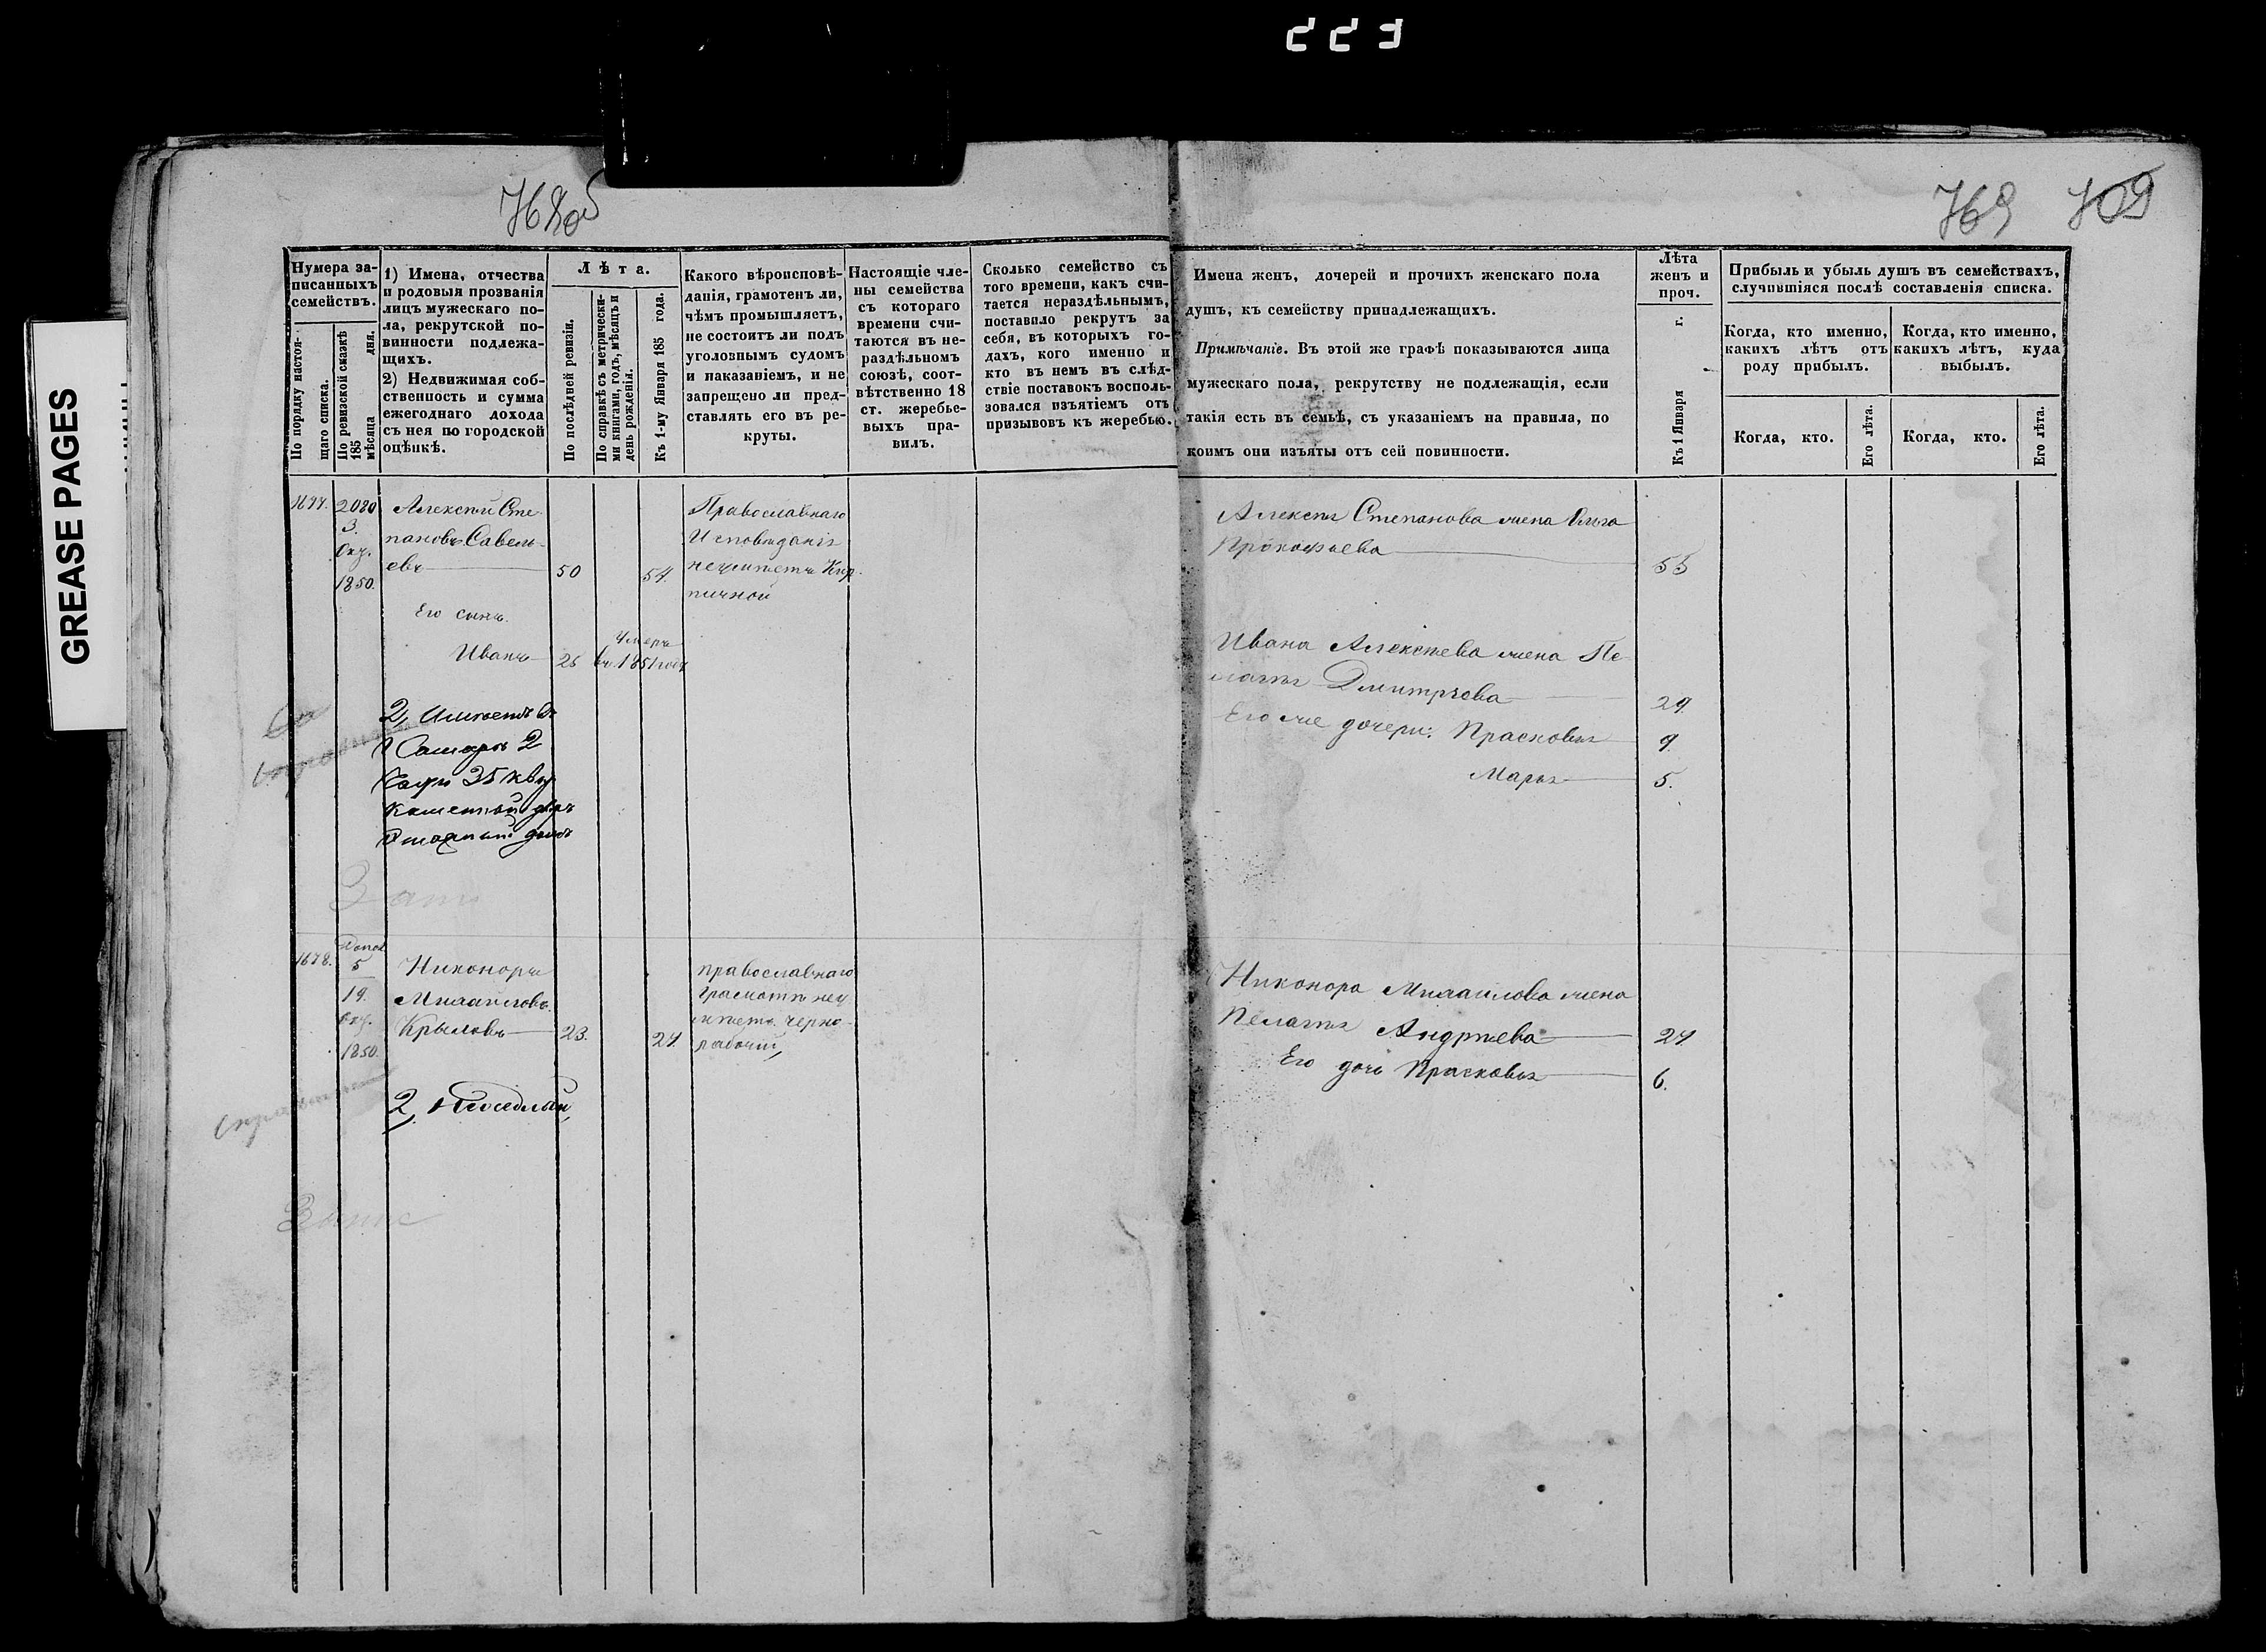 223
GREASE PAGES
768об
769 709
Нумера за-
писанныхъ
семействъ.
По порядку настоя-
щаго списка.
По ревизской сказкѣ
185 дня.
мѣсяца
1) Имена, отчества
и родовыя прозванія
лицъ мужескаго по-
ла, рекрутской по-
винности подлежа-
щихъ.
2) Недвижимая соб-
ственность и сумма
ежегоднаго дохода
съ нея по городской
оцѣнкѣ.
Лѣта.
По послѣдней ревизіи.
По справкѣ съ метрически-
ми книгами, годъ, мѣсяцъ и
день рожденія.
Къ 1-му Января 185 года.
Какого вѣроисповѣ-
данія, грамотенъ ли,
чѣмъ промышляетъ,
не состоитъ ли подъ
уголовнымъ судомъ
и наказаніемъ, и не
запрещено ли пред-
ставлять его въ ре-
круты.
Настоящіе чле-
ны семейства
съ котораго
времени счи-
таются въ не-
раздѣльномъ
союзѣ, соот-
вѣтственно 18
ст. жеребье-
выхъ пра-
вилъ.
Сколько семейство съ
того времени, какъ счи-
тается нераздѣльнымъ,
поставило рекрутъ за
себя, въ которыхъ го-
дахъ, кого именно и
кто въ немъ въ слѣд-
ствіе поставокъ восполь-
зовался изъятіемъ отъ
призывовъ къ жеребью.
Имена женъ, дочерей и прочихъ женскаго пола
душъ, къ семейству принадлежащихъ.
Примѣчаніе. Въ этой же графѣ показываются лица
мужескаго пола, рекрутству не подлежащія, если
такія есть въ семьѣ, съ указаніемъ на правила, по
коимъ они изъяты отъ сей повинности.
Лѣта
женъ и
проч.
Къ 1 Января г.
Прибыль и убыль душъ въ семействахъ,
случившіяся послѣ составленія списка.
Когда, кто именно,
какихъ лѣтъ отъ
роду прибылъ.
Когда, кто именно,
какихъ лѣтъ, куда
выбылъ.
Когда, кто.
Его лѣта.
Когда, кто.
Его лѣта.
1677. 2080
3.
Окт.
1850.
Алексѣй Сте-
пановъ Савель-
евъ 50 54.
Православнаго
Исповѣданія
неумѣетъ Кир-
пичной
Его сынъ.
Иванъ 25 Умеръ
въ 1851 году
2, Имѣетъ въ
Самарѣ 2
Части 35 квар
Каменный
домъ
Алексѣя Степанова жена Ольга
Прокофьева 55
Ивана Алексѣева жена Пе-
лагѣя Дмитріева 29.
Его же дочери: Прасковья 9.
Марья 5.
1678. Допол
5
19.
Окт.
1850.
Никоноръ
Михайловъ
Крыловъ 23. 27.
православнаго
Грамотѣ неу
мѣетъ. черно-
рабочій,
2, Неоседлый,
Никонора Михайлова жена
Пелагѣя Андрѣева 27.
Его дочь Прасковья 6.